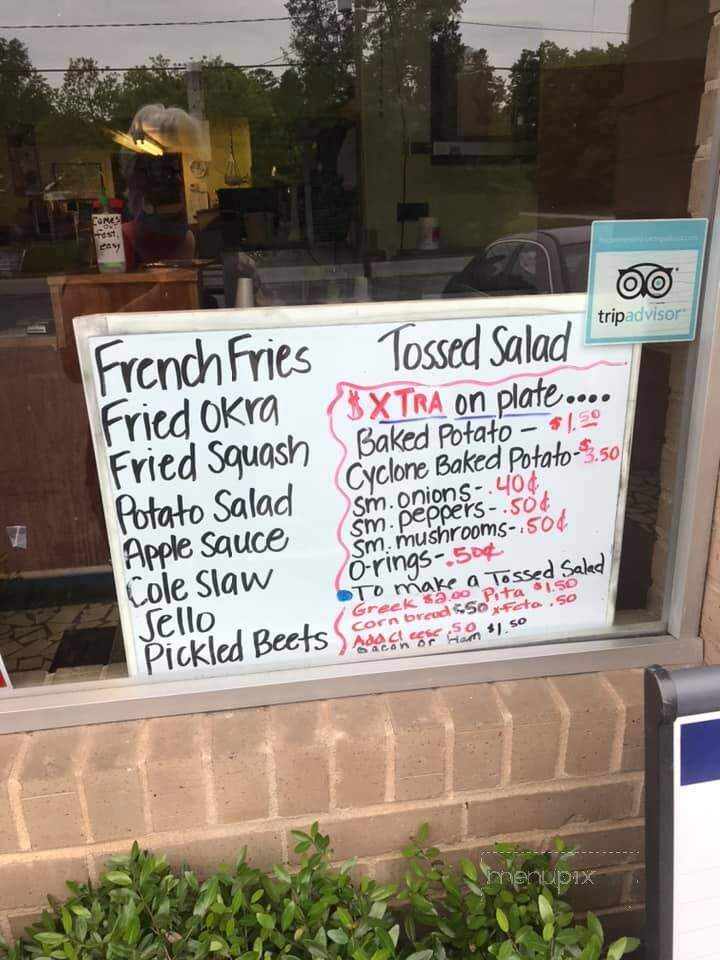 Comes
fast,
easy
tripadvisor
French Fries
Fried Okra
Fried Squash
Potato Salad
Apple Sauce
Cole Slaw
Jello
Pickled Beets
Tossed Salad
$XTRA on plate....
Baked Potato - $1.50
Cyclone Baked Potato-$3.50
sm. onions- .40¢
sm. peppers- .50¢
sm. mushrooms- .50¢
O-rings- .50¢
To make a Tossed Salad
Greek $2.00 Pita $1.50
corn bread .50 xfeta .50
Add cheese .50
Bacon or Ham $1.50
menupix